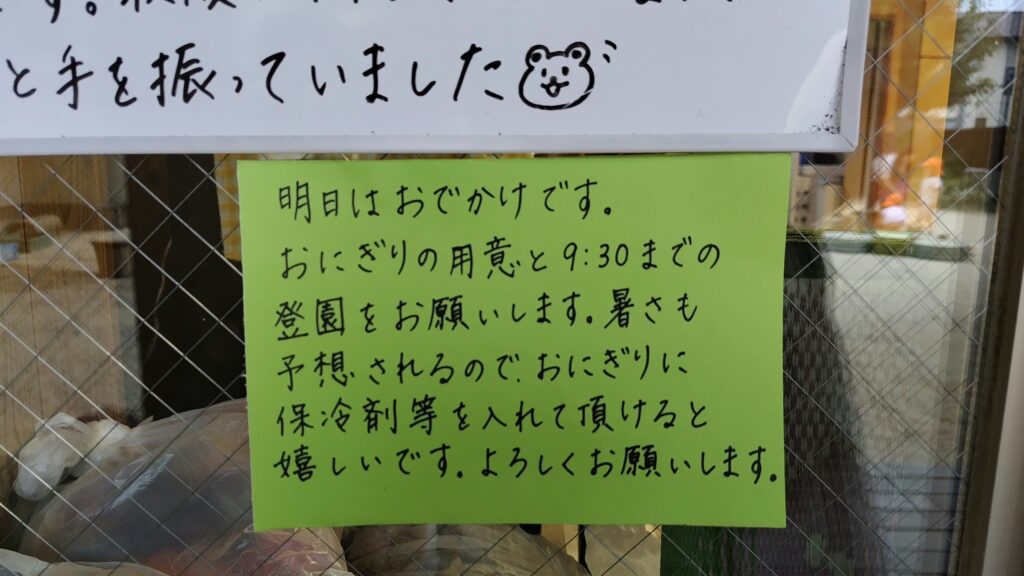 と手を振っていました
明日はおでかけです。
おにぎりの用意と9:30までの
登園をお願いします。暑さも
予想されるので、おにぎりに
保冷剤等を入れて頂けると
嬉しいです。よろしくお願いします。